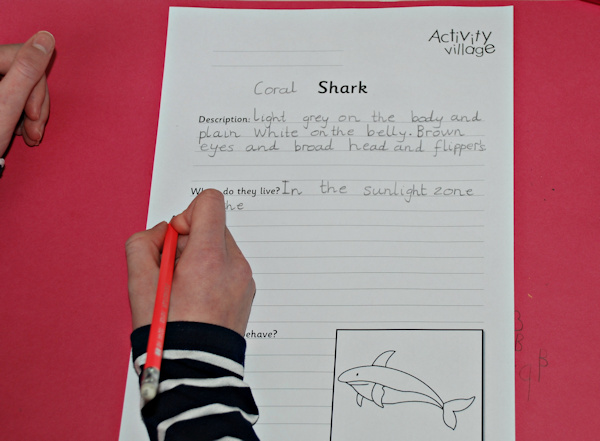 Activity
village
Coral Shark
Description: Light grey on the body and
plain white on the belly. Brown
eyes and broad head and flippers
do they live? In the sunlight zone
he
ehave?